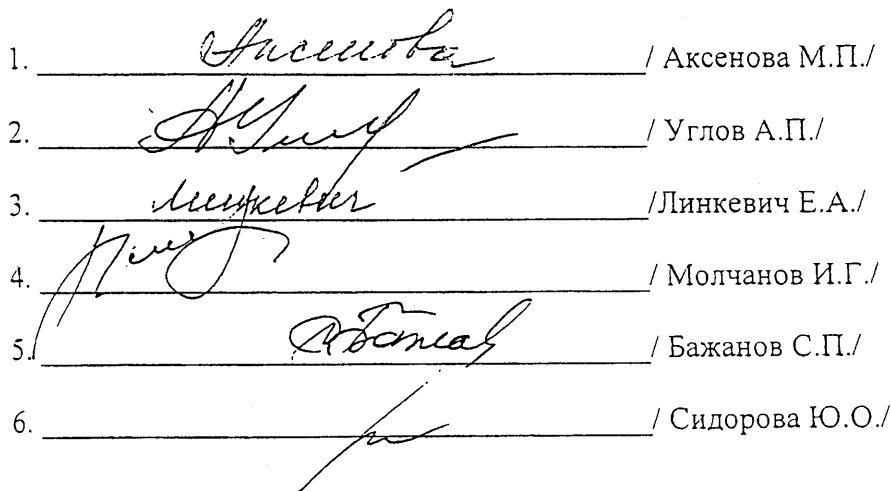 1. Аксенова / Аксенова М.П./
2. / Углов А.П./
3. Линкевич /Линкевич Е.А./
4. / Молчанов И.Г./
5. / Бажанов С.П./
6. / Сидорова Ю.О./